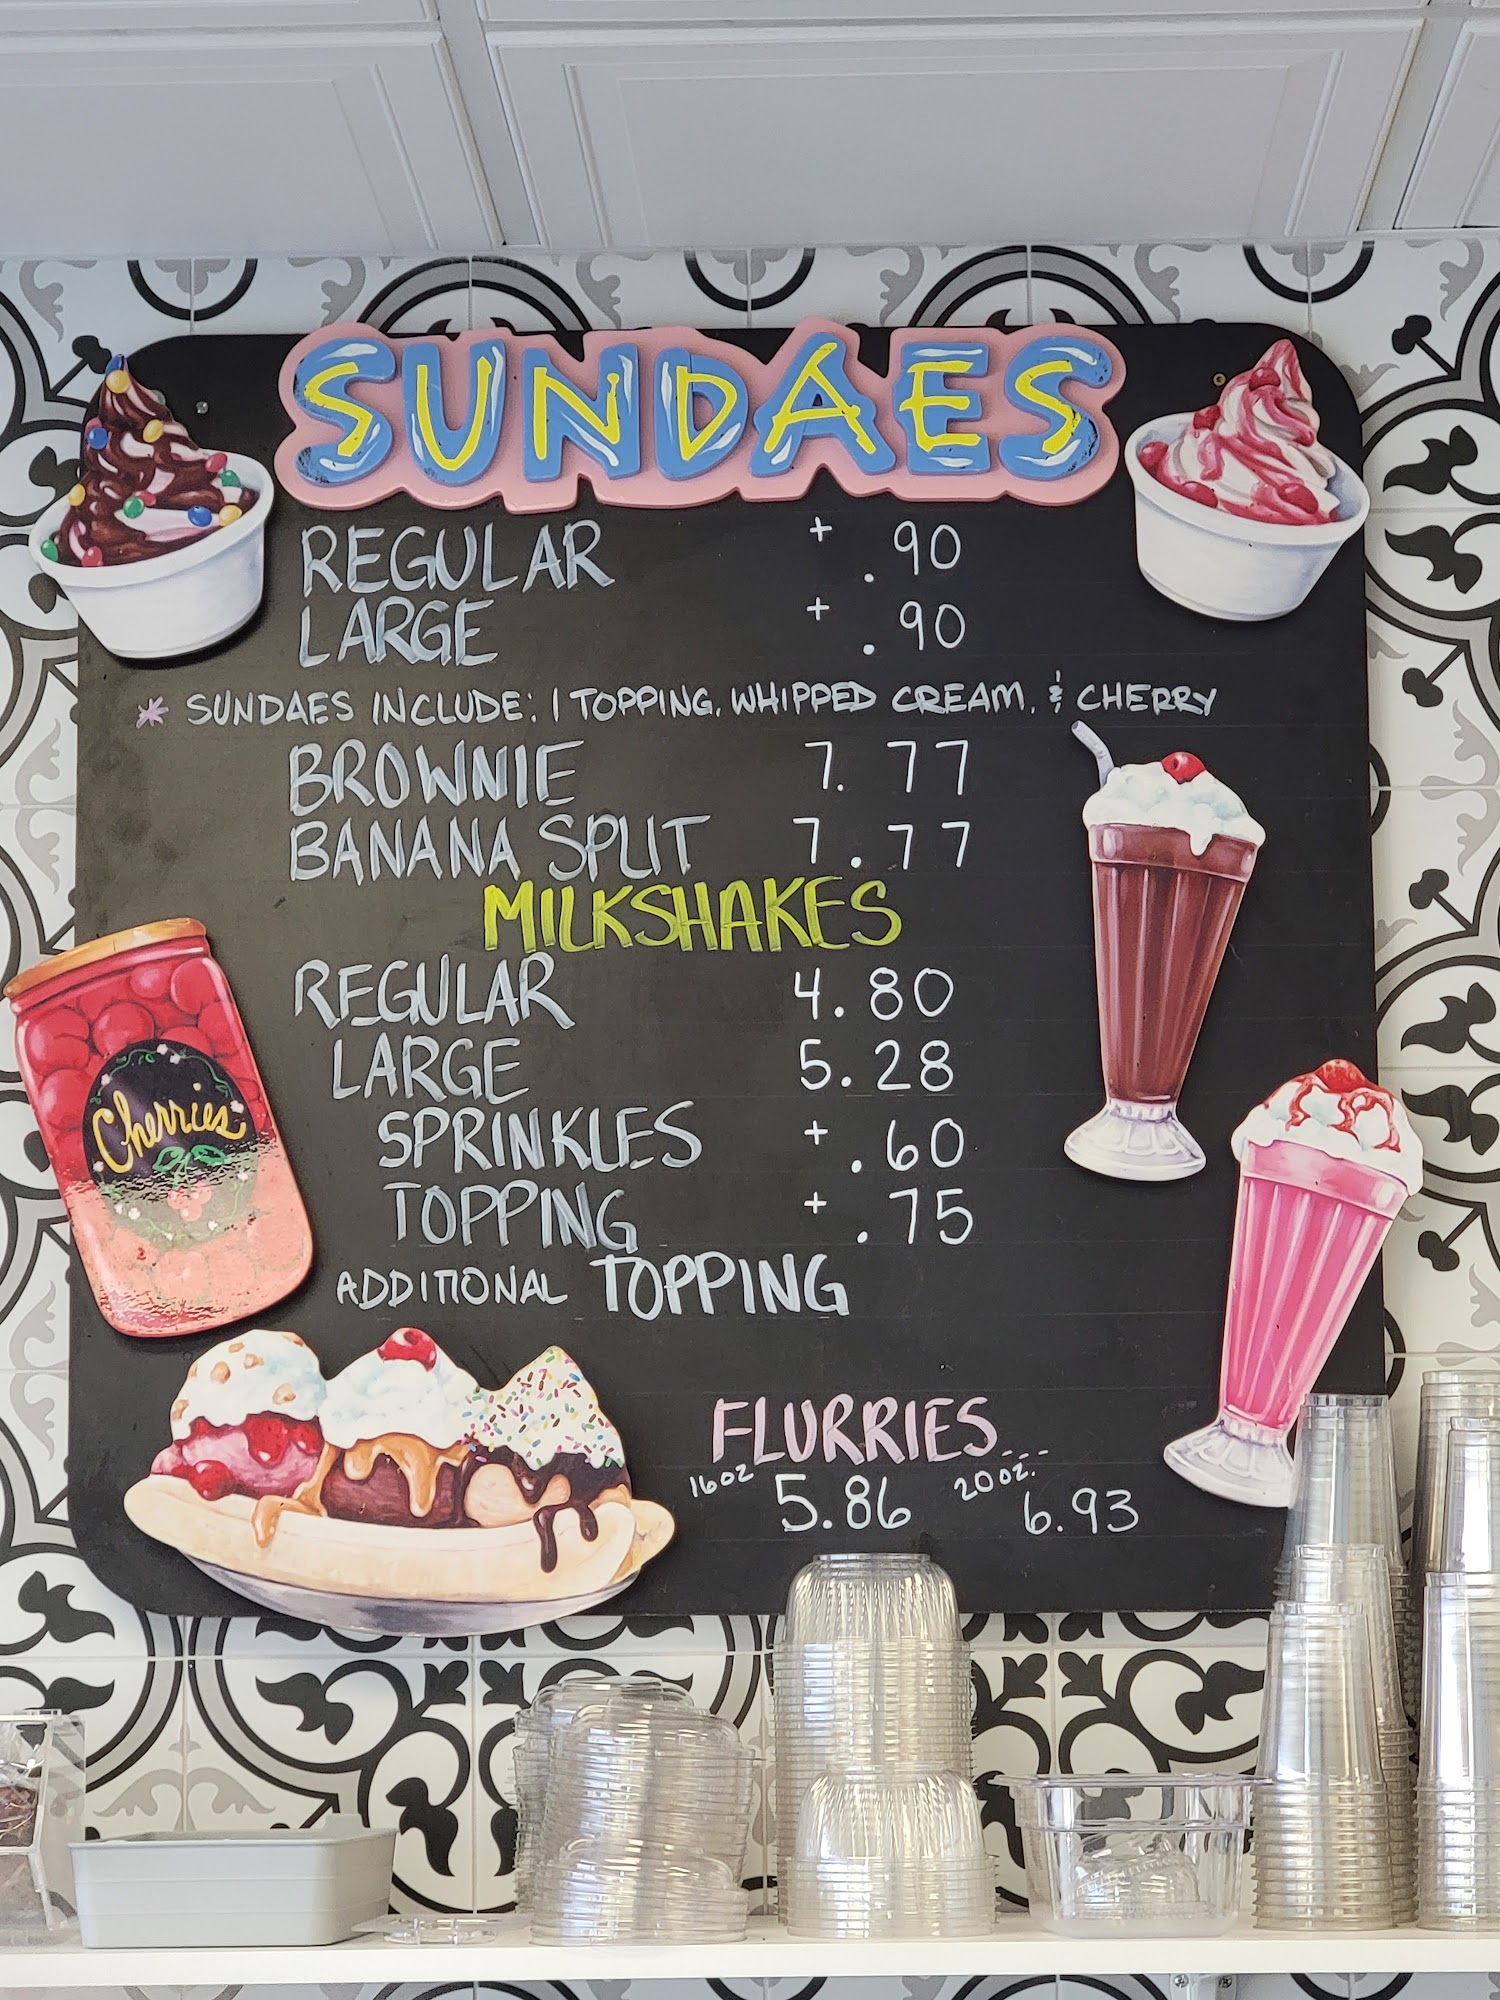 SUNDAES
REGULAR + .90
LARGE + .90
* SUNDAES INCLUDE: 1 TOPPING, WHIPPED CREAM, & CHERRY
BROWNIE 7.77
BANANA SPLIT 7.77
MILKSHAKES
REGULAR 4.80
LARGE 5.28
SPRINKLES + .60
TOPPING + .75
ADDITIONAL TOPPING
Cherries
FLURRIES...
16oz 5.86 20oz. 6.93